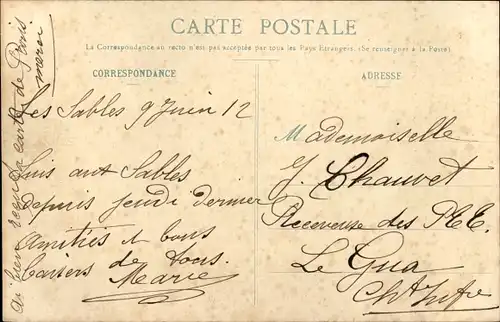 CARTE POSTALE
La Correspondance au recto n'est pas acceptée par tous les Pays Étrangers. (Se renseigner à la Poste).
CORRESPONDANCE
Les Sables 9 Juin 12
Suis aux Sables
depuis jeudi dernier
Amitiés & bons
baisers de tous.
Marie
ai bien reçu ta carte de Paris
merci
ADRESSE
Mademoiselle
J. Chauvet
Receveuse des P.E.E.
Le Gua
Chte Infre